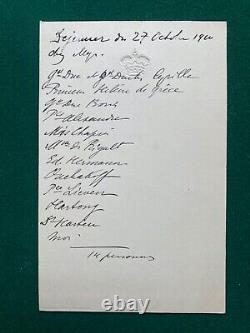 Déjeuner du 27 Octobre 19
chez Mgr.
Gd Duc et Gde Duchs Cyrille
Princesse Hélène de Grèce
Gd Duc Boris
Pce Alexandre
Miss Chapin
Mme de Rigault
Ed. Hermann
Ouchakoff
Pce Lieven
Hartong
Dr Karsten
Moi
14 personnes